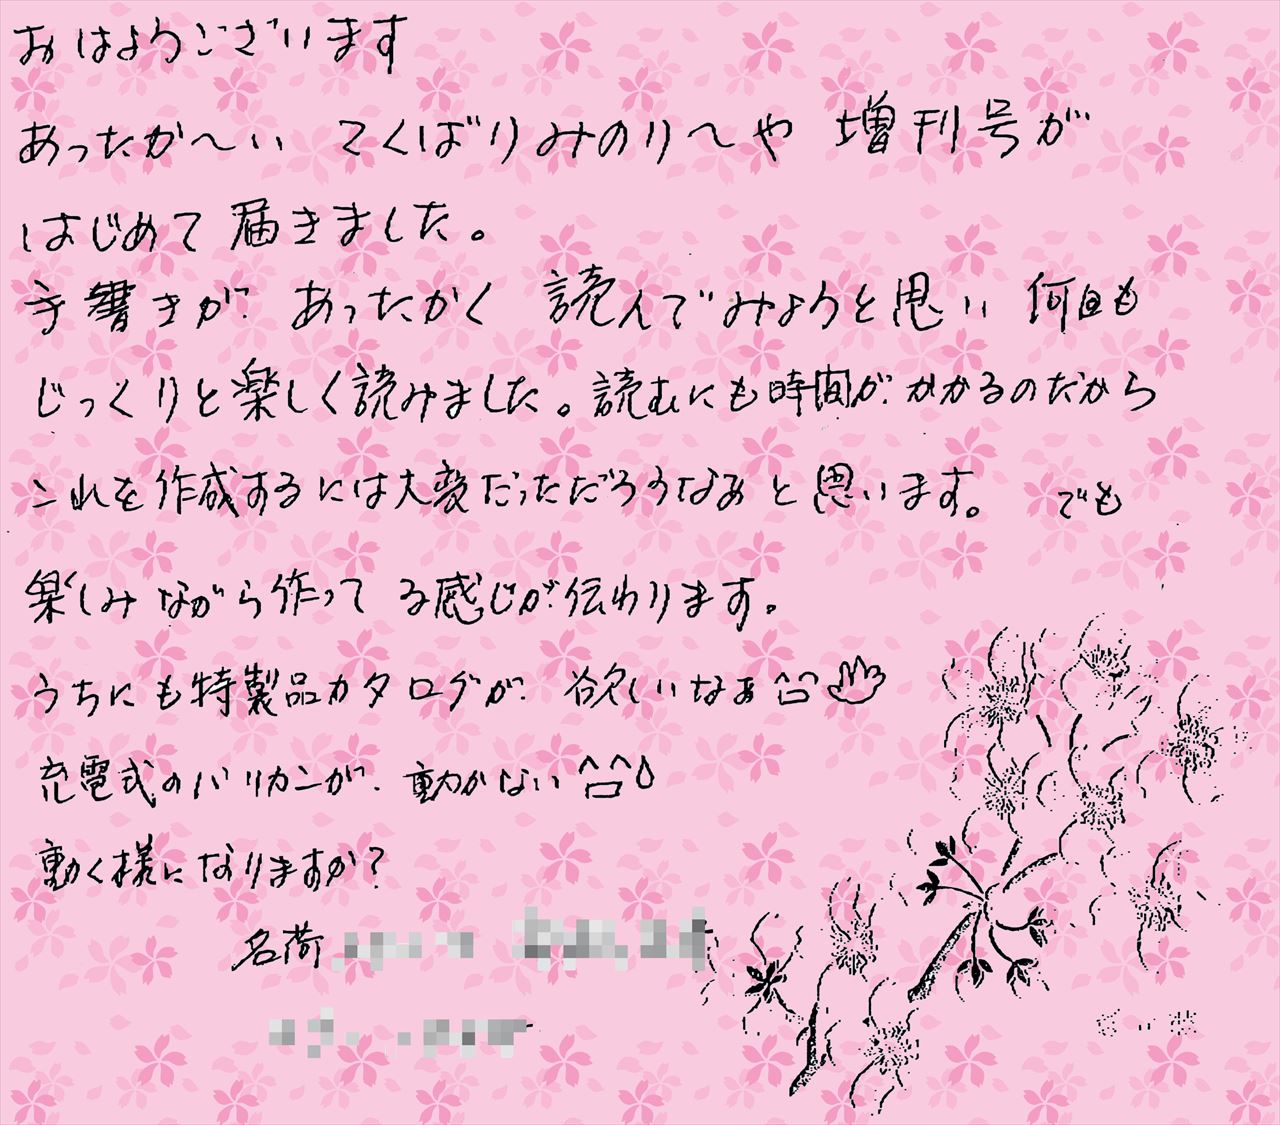 おはようございます
あったか〜い てくばりみのり〜や 増刊号が
はじめて届きました。
手書きが あったかく 読んでみようと思い 何回も
じっくりと楽しく読みました。読むにも時間が かかるのだから
これを作成するには大変だっただろうなぁと思います。 でも
楽しみながら作ってる感じが伝わります。
うちにも特製品カタログが 欲しいなぁ
充電式のバリカンが 動かない
動く様になりますか?
名荷